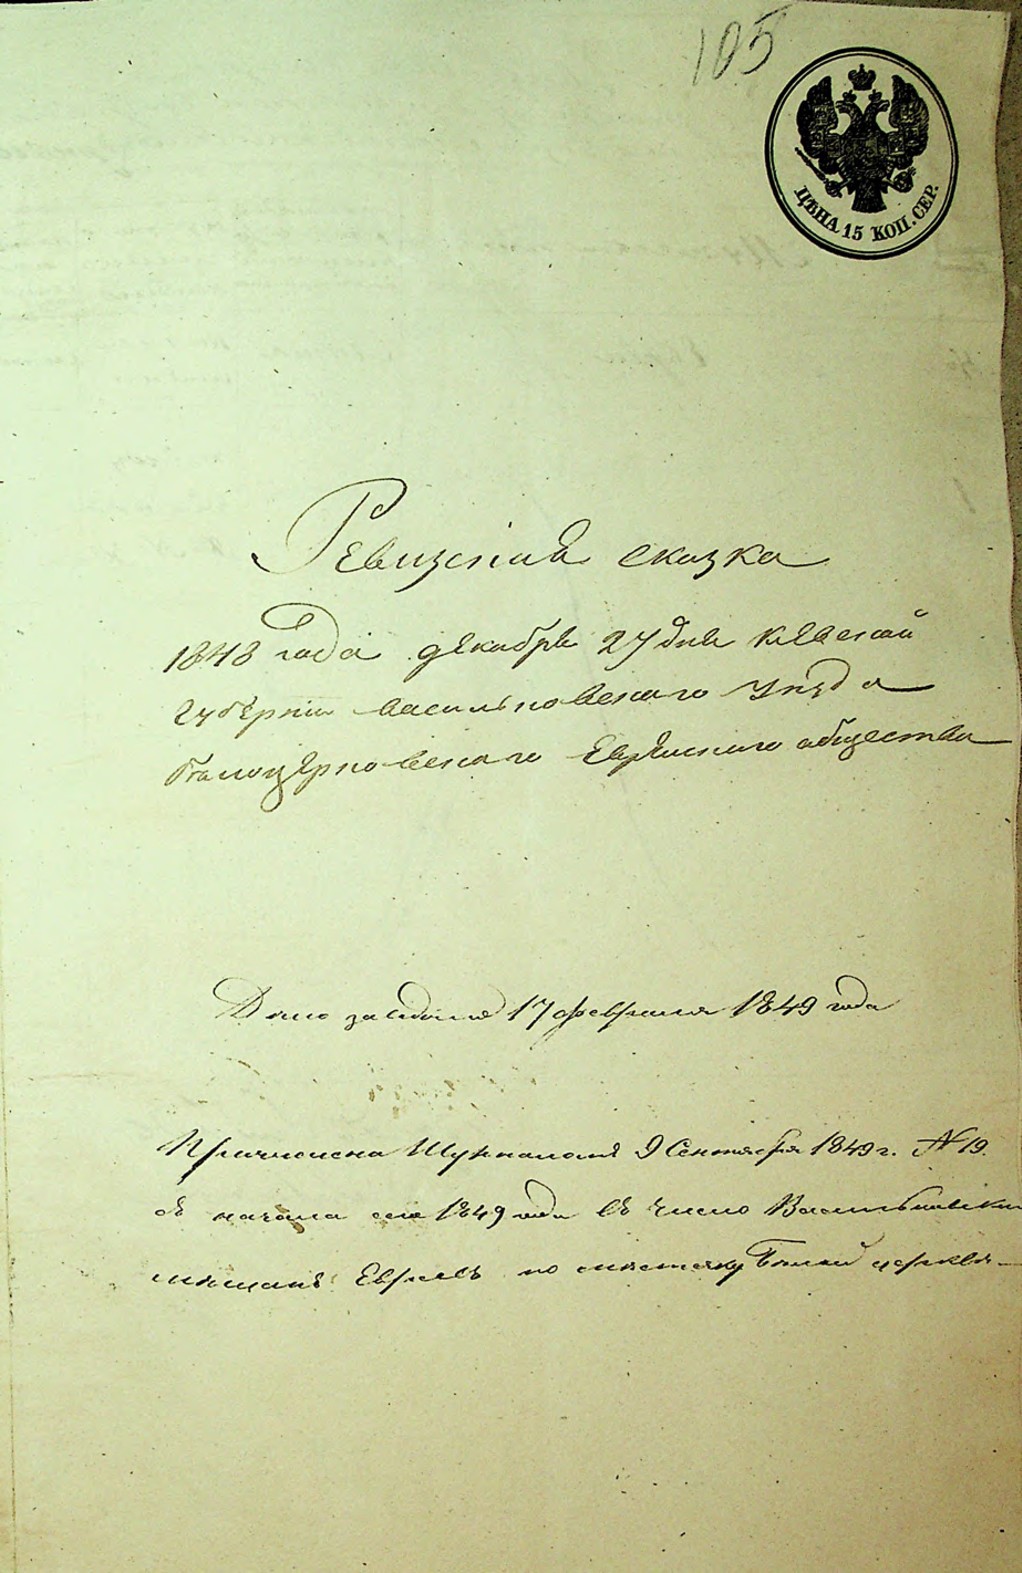 105
ЦѢНА 15 КОП. СЕР.
Ревизская сказка
1848 года декабря 27 дня Киевской
губерніи васильковскаго уѣзда
бѣлоцерковскаго Еврейскаго общества
17 февраля 1849 года
Причислена Журналомъ 9 Сентября 1849 г. № 19.
съ начала сего 1849 года въ число Васильковскихъ
мѣщанъ Евреевъ по мѣстечку Бѣлой церкви